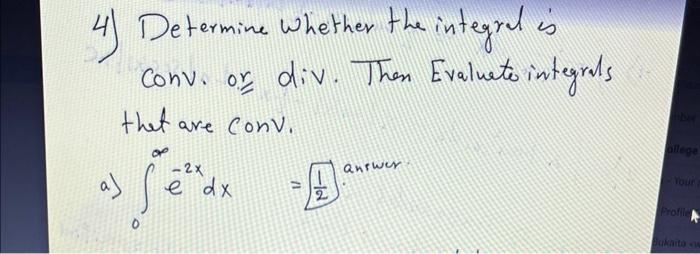 4) Determine whether the integral is
conv. or div. Then Evaluate integrals
that are conv.
a) ∫₀^∞ e^{-2x} dx = 1/2 answer.
allege
Your
Profile